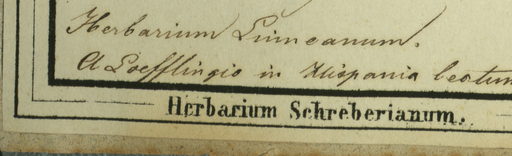 Herbarium Linneanum.
A Loefflingio in Hispania lectum
Herbarium Schreberianum.